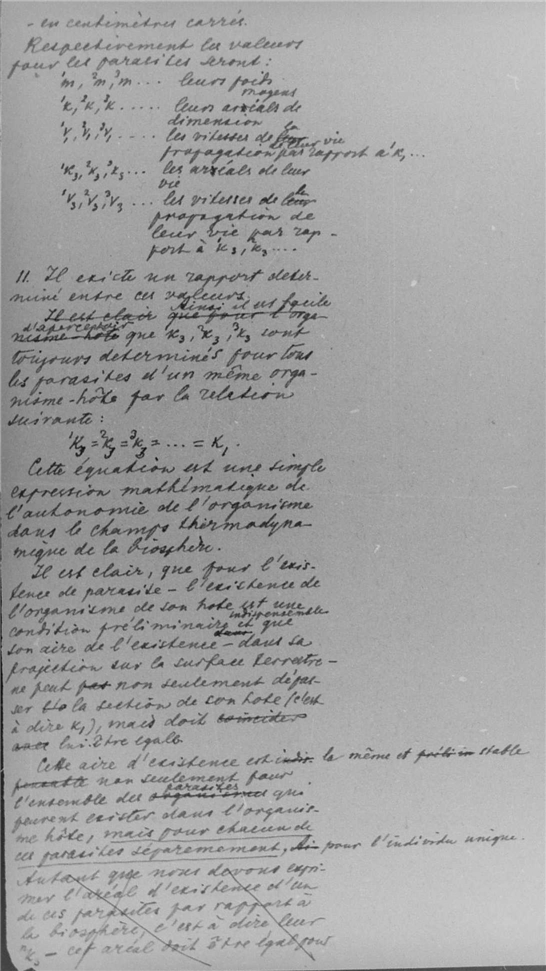 - en centimètres carrés.
Respectivement les valeurs
pour les parasites seront:
¹m, ²m, ³m ... leurs poids
moyens
¹k, ²k, ³k ..... leurs aréals de
dimension
¹V, ²V, ³V, ..... les vitesses de leur la
de leur vie
propagation par rapport à ¹K, ...
¹K₃, ²K₃, ³K₃... les aréals de leur
vie
¹V₃, ²V₃, ³V₃ ... les vitesses de leur la
propagation de
leur vie par rap-
port à ¹K₃, ²K₃ ....
11. Il existe un rapport deter-
miné entre ces valeurs.
Ainsi il est facile
Il est clair que pour l'orga-
d'apercevoir
nisme-hôte que ¹K₃, ²K₃, ³K₃ sont
toujours determinés pour tous
les parasites d'un même orga-
nisme-hôte par la relation
suivante:
¹K₃ = ²K₃ = ³K₃ = ... = K₁.
Cette équation est une simple
expression mathématique de
l'autonomie de l'organisme
dans le champs thermodyna-
mique de la biosphère.
Il est clair, que pour l'exis-
tence de parasite - l'existence de
l'organisme de son hote est une
indispensable
condition préliminaire et que
son aire de l'existence - dans sa
projection sur la surface terrestre -
ne peut pas non seulement dépas-
ser la section de son hote (c'est
à dire K₁), mais doit coincider
avec lui être égale
Cette aire d'existence est la même et stable
non seulement pour
parasites
l'ensemble des organismes qui
peuvent exister dans l'organis-
me hôte, mais pour chacun de
ces parasites séparemement, pour l'individu unique.
Autant que nous devons expri-
mer l'aréal d'existence d'un
de ces parasites par rapport à
la biosphère, c'est à dire leur
ⁿK₃ - cet aréal doit être égal pour